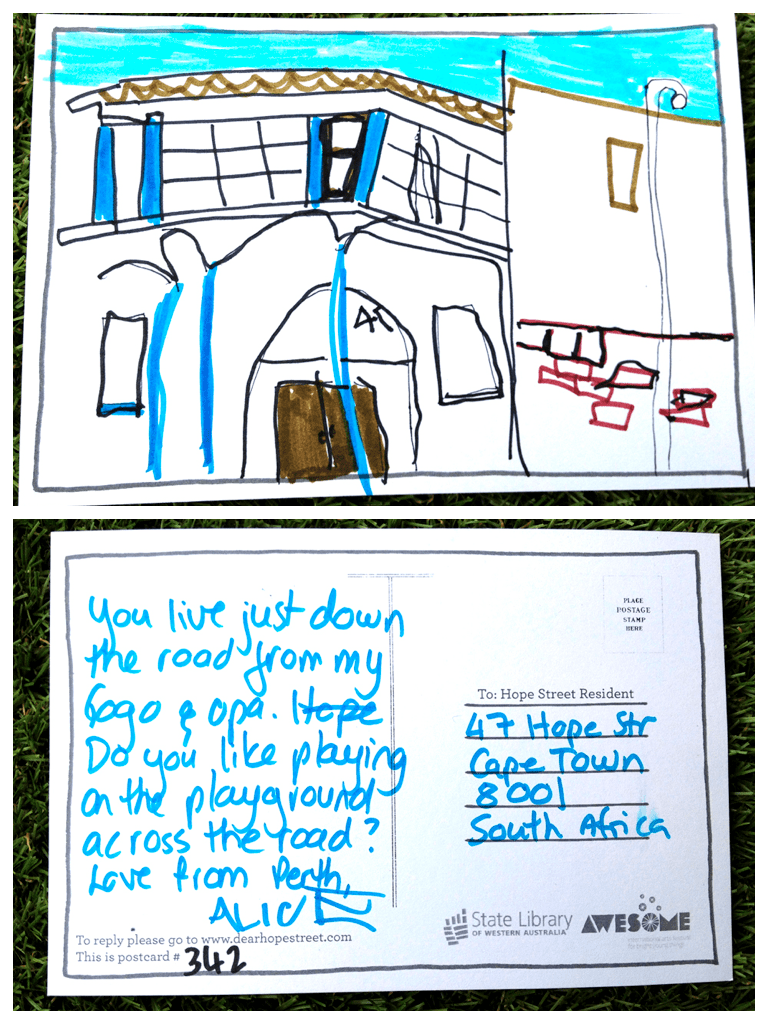 You live just down
the road from my
Gogo & opa. Hope
Do you like playing
on the playground
across the road?
Love from Perth,
ALICE
To reply please go to www.dearhopestreet.com
This is postcard # 342
PLACE
POSTAGE
STAMP
HERE
To: Hope Street Resident
47 Hope Str
Cape Town
8001
South Africa
State Library
OF WESTERN AUSTRALIA
AWESOME